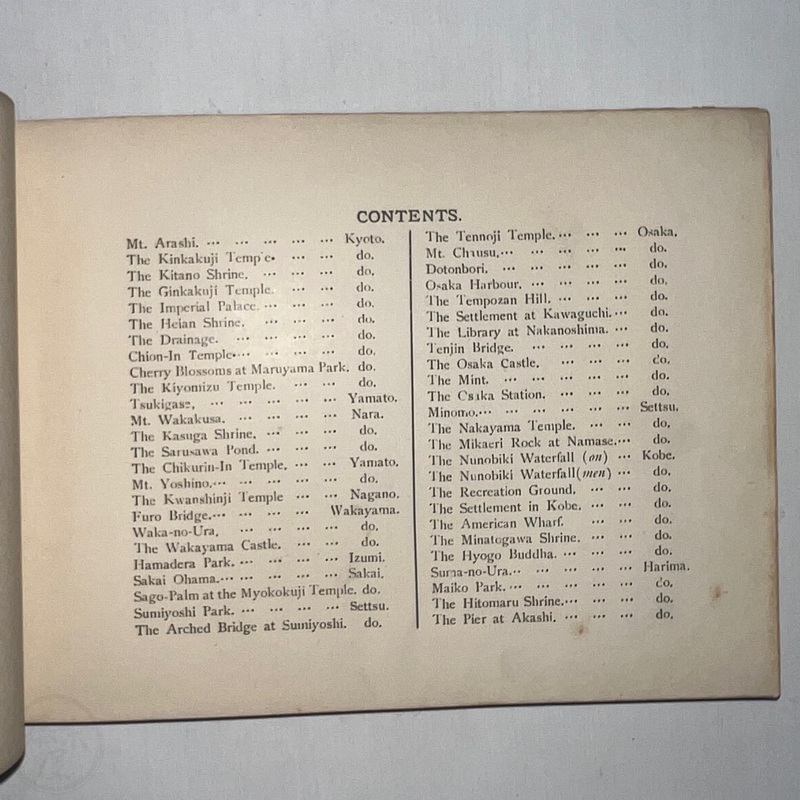 CONTENTS.
Mt. Arashi. ... ... ... ... ... Kyoto.
The Kinkakuji Temple. ... ... do.
The Kitano Shrine. ... ... ... do.
The Ginkakuji Temple. ... ... do.
The Imperial Palace. ... ... ... do.
The Heian Shrine. ... ... ... do.
The Drainage. ... ... ... ... do.
Chion-In Temple. ... ... ... ... do.
Cherry Blossoms at Maruyama Park. do.
The Kiyomizu Temple. ... ... do.
Tsukigase, ... ... ... ... ... Yamato.
Mt. Wakakusa. ... ... ... ... Nara.
The Kasuga Shrine. ... ... ... do.
The Sarusawa Pond. ... ... ... do.
The Chikurin-In Temple. ... ... Yamato.
Mt. Yoshino. ... ... ... ... ... do.
The Kwanshinji Temple ... ... Nagano.
Furo Bridge. ... ... ... ... Wakayama.
Waka-no-Ura, ... ... ... ... do.
The Wakayama Castle. ... ... do.
Hamadera Park. ... ... ... ... Izumi.
Sakai Ohama. ... ... ... ... ... Sakai.
Sago-Palm at the Myokokuji Temple. do.
Sumiyoshi Park. ... ... ... ... Settsu.
The Arched Bridge at Sumiyoshi. do.
The Tennoji Temple. ... ... ... Osaka.
Mt. Chausu. ... ... ... ... ... do.
Dotonbori. ... ... ... ... ... do.
Osaka Harbour. ... ... ... ... do.
The Tempozan Hill. ... ... ... do.
The Settlement at Kawaguchi. ... do.
The Library at Nakanoshima. ... do.
Tenjin Bridge. ... ... ... ... do.
The Osaka Castle. ... ... ... do.
The Mint. ... ... ... ... ... do.
The Osaka Station. ... ... ... do.
Minomo. ... ... ... ... ... ... Settsu.
The Nakayama Temple. ... ... do.
The Mikaeri Rock at Namase. ... do.
The Nunobiki Waterfall (on) ... Kobe.
The Nunobiki Waterfall (men) ... do.
The Recreation Ground. ... ... do.
The Settlement in Kobe. ... ... do.
The American Wharf. ... ... do.
The Minatogawa Shrine. ... ... do.
The Hyogo Buddha. ... ... ... do.
Suma-no-Ura. ... ... ... ... ... Harima.
Maiko Park. ... ... ... ... ... do.
The Hitomaru Shrine. ... ... ... do.
The Pier at Akashi. ... ... ... do.